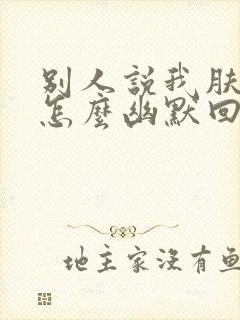 别人説我肤
怎麽幽默回
地主家没有鱼